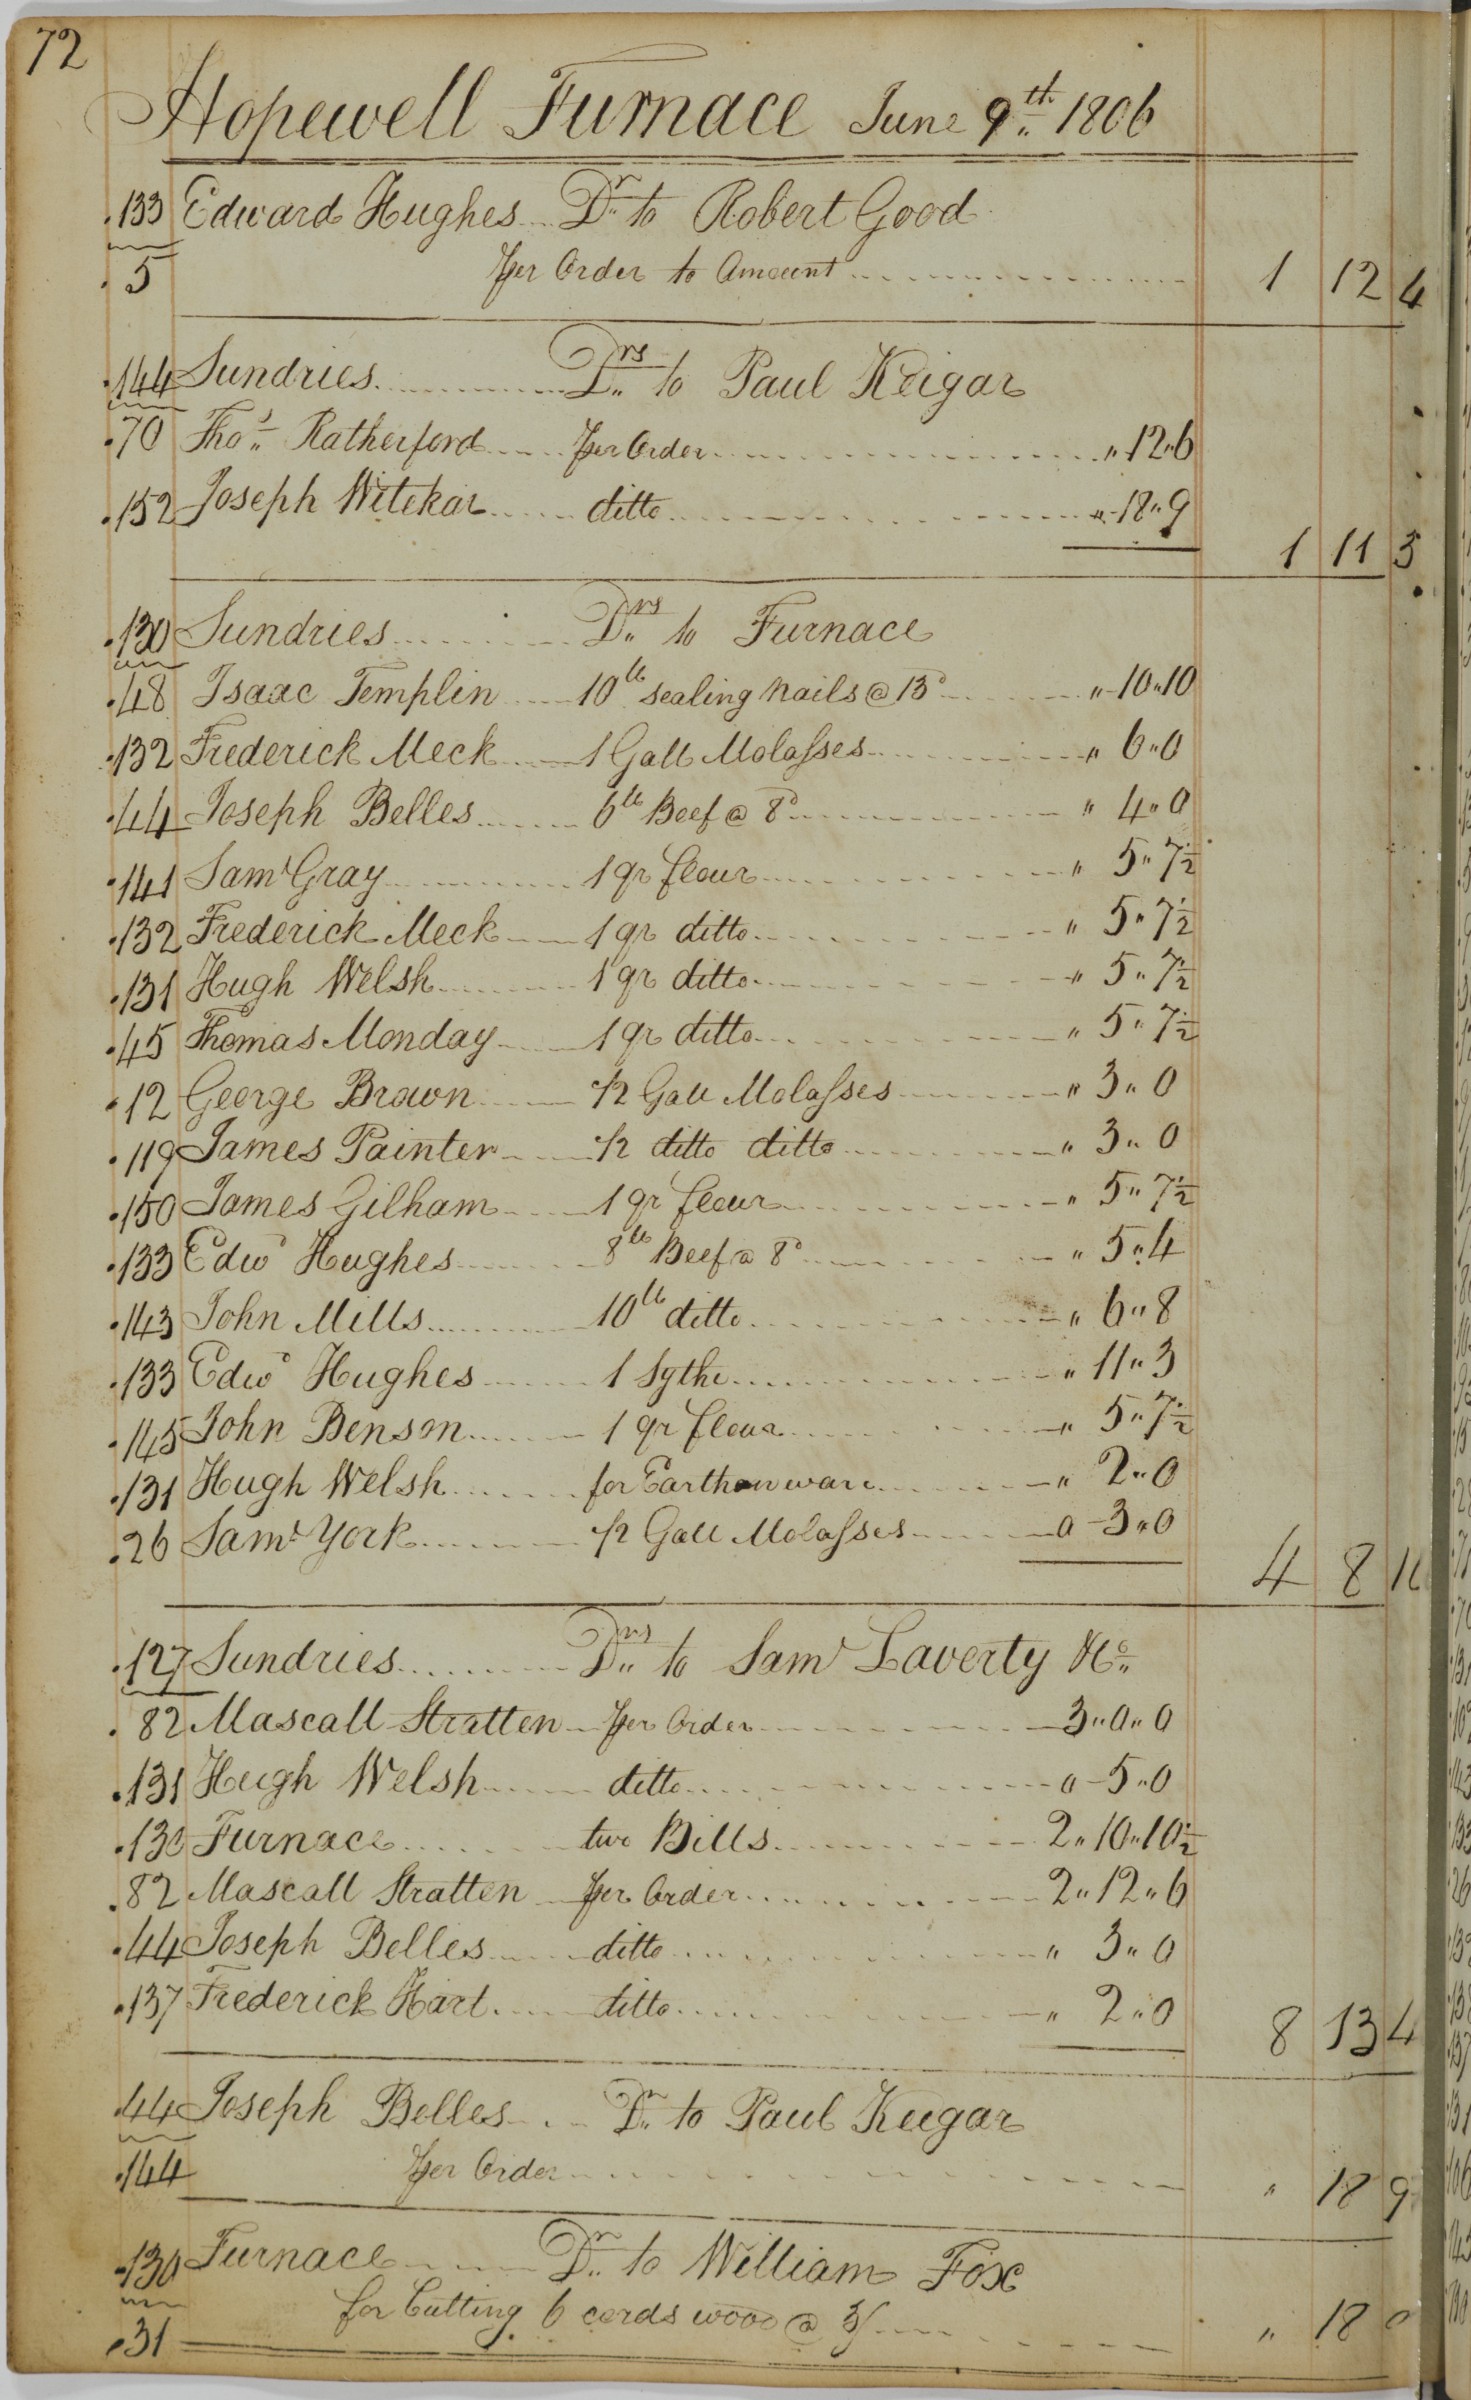 72
Hopewell Furnace June 9th 1806
133 Edward Hughes Dr to Robert Good
5 per Order to Amount 1 12 4
144 Sundries Drs to Paul Keigar
70 Thos Ratherford per Order " 12 " 6
152 Joseph Witekar ditto " 18 " 9
1 11 3
130 Sundries Drs to Furnace
48 Isaac Templin 10 lb sealing nails @ 13d " 10 " 10
132 Frederick Meck 1 Gall Molasses " 6 " 0
44 Joseph Belles 6 lb Beef @ 8d " 4 " 0
141 Saml Gray 1 qr flour " 5 " 7½
132 Frederick Meck 1 qr ditto " 5 " 7½
131 Hugh Welsh 1 qr ditto " 5 " 7½
45 Thomas Monday 1 qr ditto " 5 " 7½
12 George Brown ½ Gall Molasses " 3 " 0
119 James Painter ½ ditto ditto " 3 " 0
150 James Gilham 1 qr flour " 5 " 7½
133 Edwd Hughes 8 lb Beef @ 8d " 5 " 4
143 John Mills 10 lb ditto " 6 " 8
133 Edwd Hughes 1 Sythe " 11 " 3
145 John Benson 1 qr flour " 5 " 7½
131 Hugh Welsh for Earthenware " 2 " 0
26 Saml York ½ Gall Molasses 0 - 3 " 0
4 8 11
127 Sundries Drs to Saml Laverty &Co
82 Mascall Stratten per Order 3 " 0 " 0
131 Hugh Welsh ditto 0 - 5 " 0
130 Furnace two Bills 2 " 10 " 10½
82 Mascall Stratten per Order 2 " 12 " 6
44 Joseph Belles ditto " 3 " 0
137 Frederick Hart ditto " 2 " 0
8 13 4
44 Joseph Belles Dr to Paul Keigar
144 per Order " 18 9
130 Furnace Dr to William Fox
31 for Cutting 6 cords wood @ 3/ " 18 0